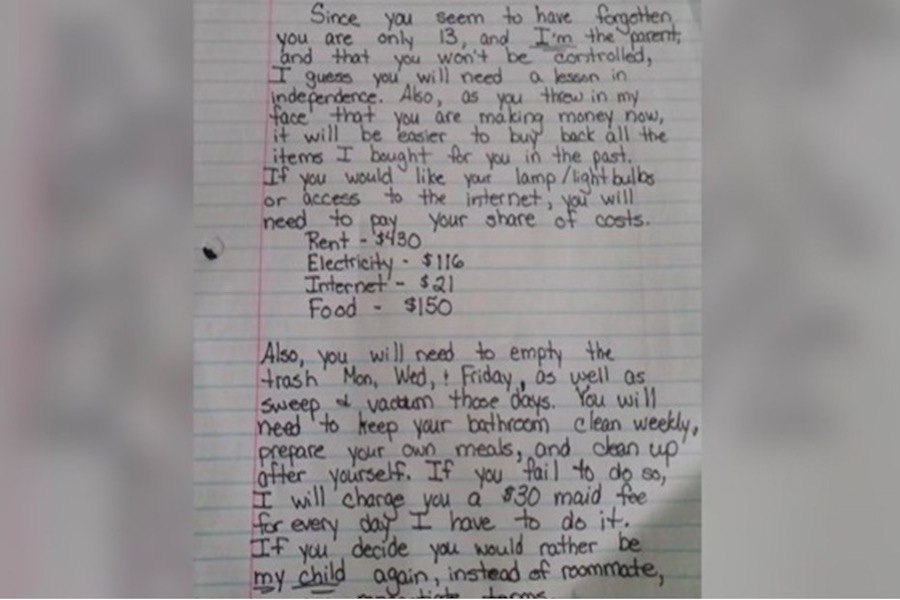 Since you seem to have forgotten
you are only 13, and I'm the parent,
and that you won't be controlled,
I guess you will need a lesson in
independence. Also, as you threw in my
face that you are making money now,
it will be easier to buy back all the
items I bought for you in the past.
If you would like your lamp/lightbulbs
or access to the internet, you will
need to pay your share of costs.
Rent - $430
Electricity - $116
Internet - $21
Food - $150
Also, you will need to empty the
trash Mon, Wed, + Friday, as well as
sweep & vacuum those days. You will
need to keep your bathroom clean weekly,
prepare your own meals, and clean up
after yourself. If you fail to do so,
I will charge you a $30 maid fee
for every day I have to do it.
If you decide you would rather be
my child again, instead of roommate,
terms.